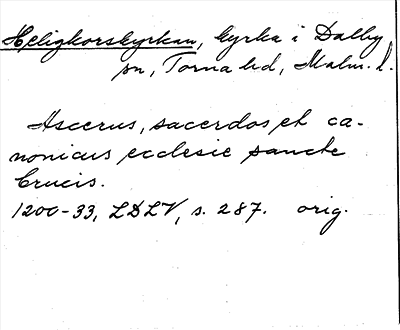 Heligkorskyrkan, kyrka i Dalby
sn, Torna hd, Malm. l.
Ascerus, sacerdos et ca-
nonicus ecclesie sancte
Crucis.
1200-33, LDLV, s. 287. orig.